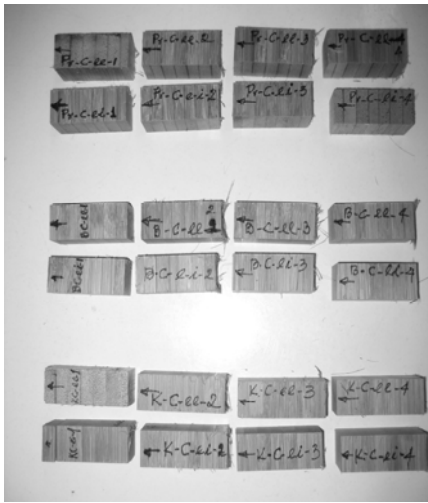 Pr-C-ll-1
Pr-C-ll-2
Pr-C-ll-3
Pr-C-ll-4
Pr-C-li-1
Pr-C-li-2
Pr-C-li-3
Pr-C-li-4
B-C-ll-1
B-C-ll-2
B-C-ll-3
B-C-ll-4
B-C-li-1
B-C-li-2
B-C-li-3
B-C-li-4
K-C-ll-1
K-C-ll-2
K-C-ll-3
K-C-ll-4
K-C-li-2
K-C-li-3
K-C-li-4